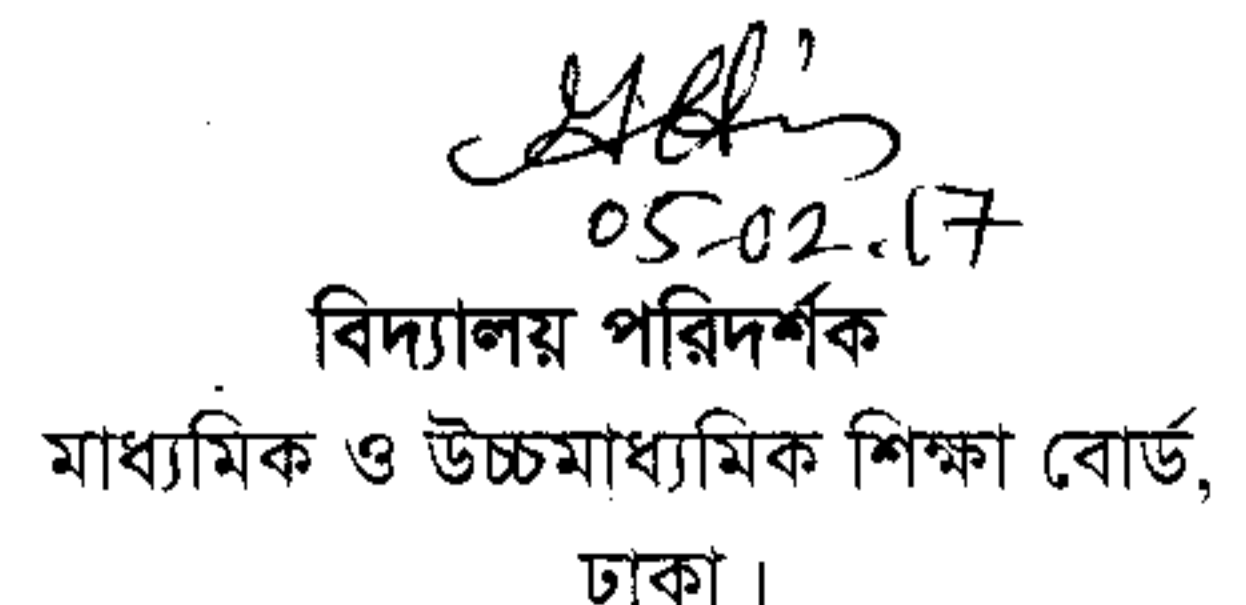 05-02.17
বিদ্যালয় পরিদর্শক
মাধ্যমিক ও উচ্চমাধ্যমিক শিক্ষা বোর্ড,
ঢাকা।